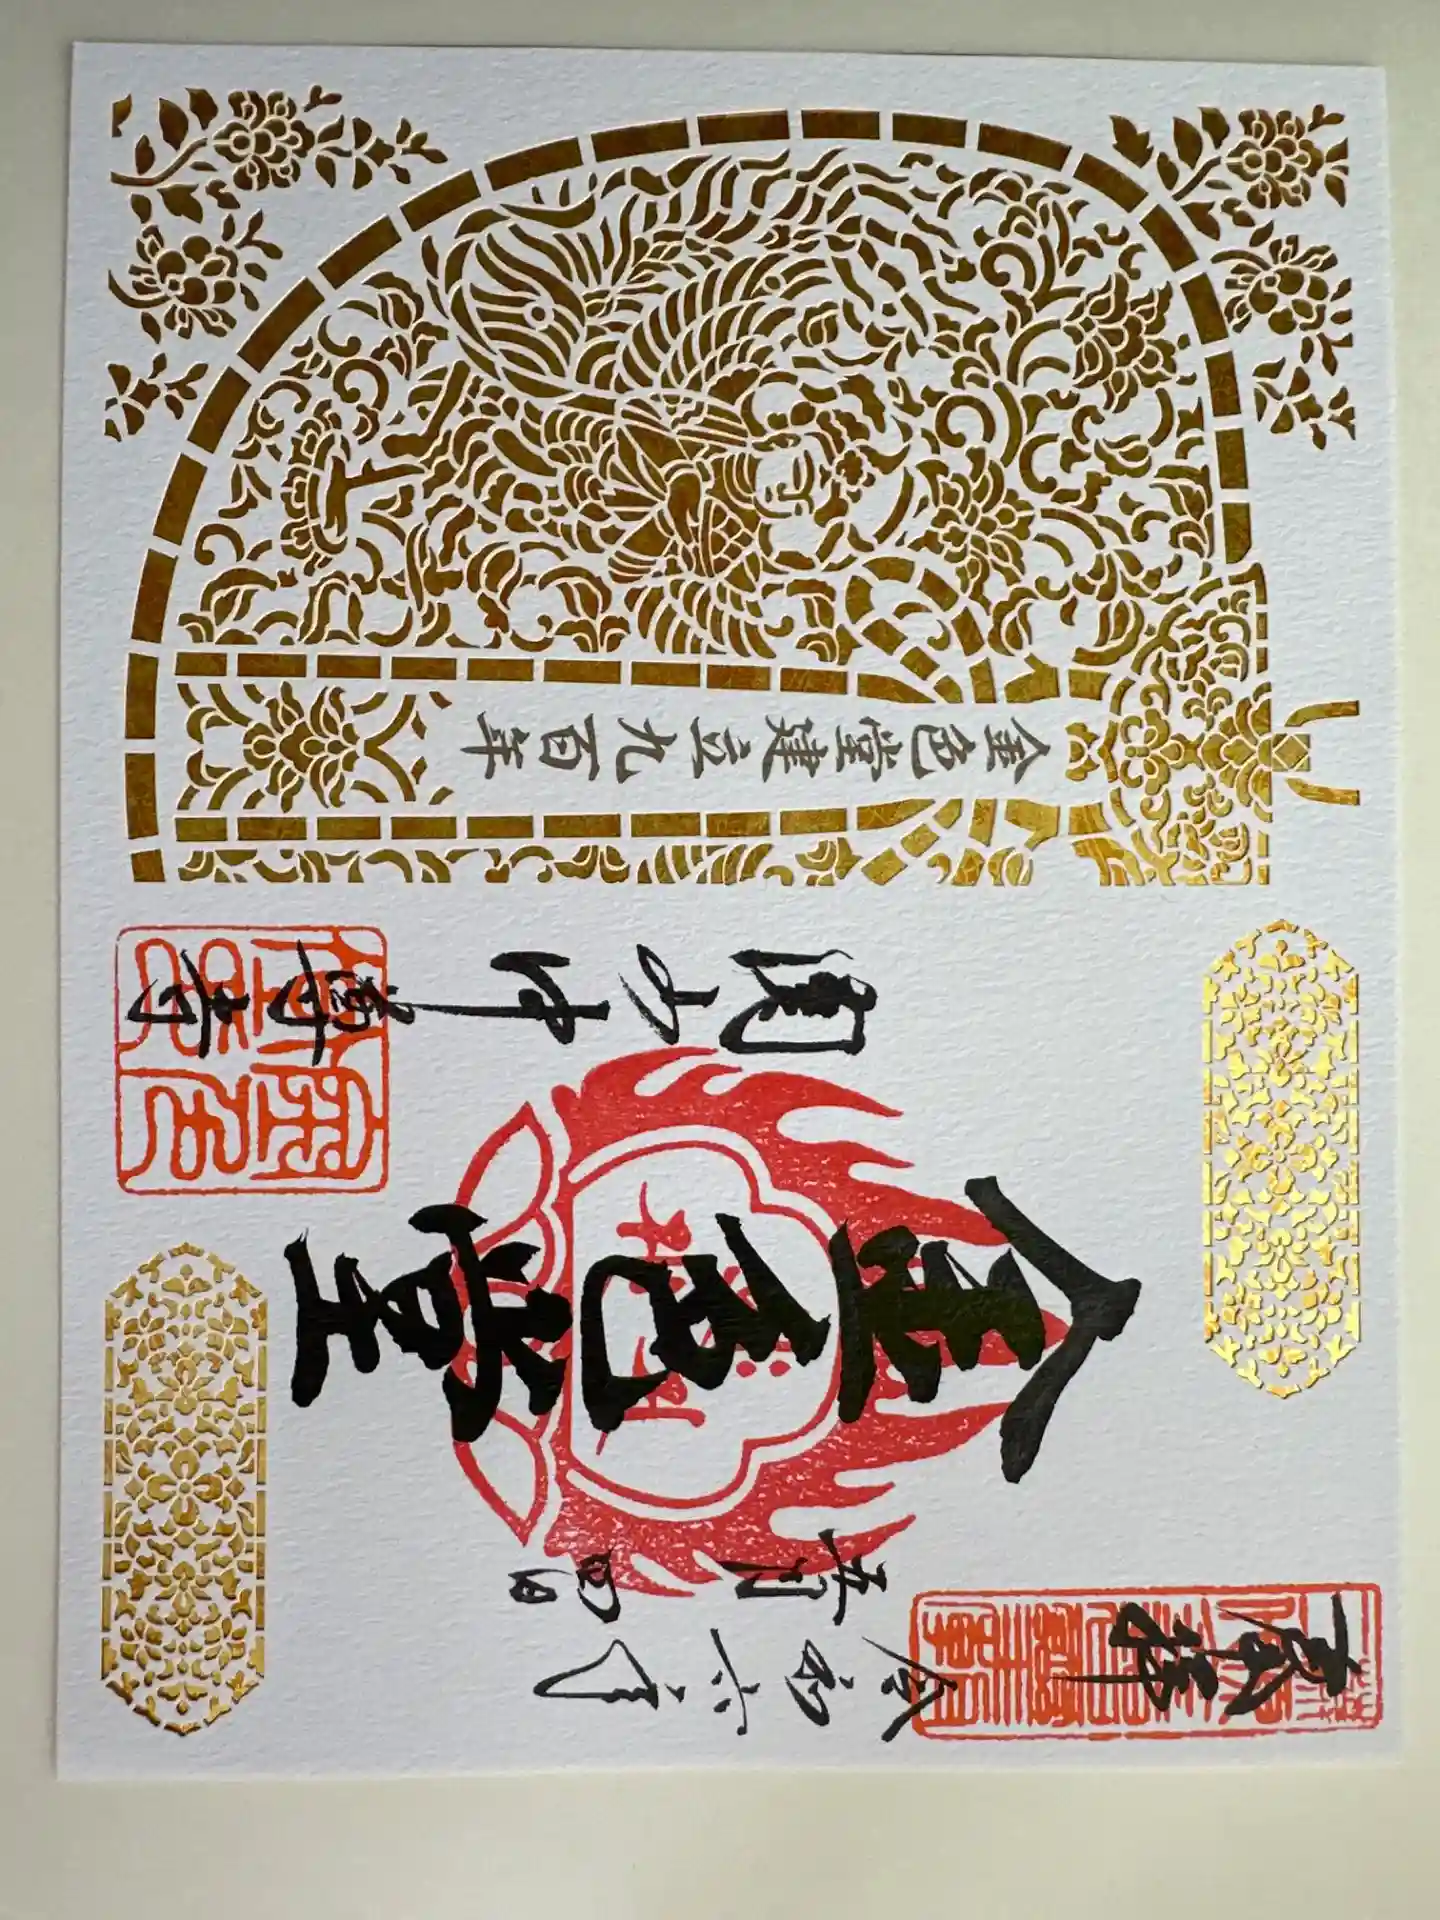 奉拝
令和六年
五月四日
金色堂
関山中尊寺
金色堂建立九百年